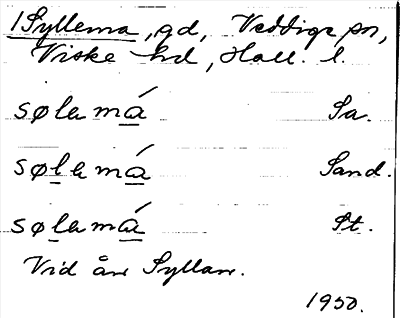 1 Syllema, gd, Veddige sn,
Viske hd, Hall. l.
sølamá Sa.
sølamá Sand.
sølamá St.
Vid ån Syllan.
1950.